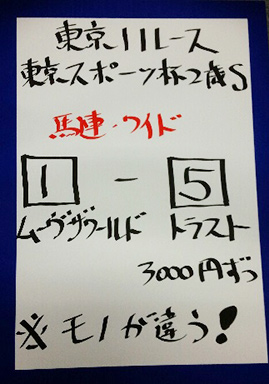 東京11レース
東京スポーツ杯2歳S
馬連・ワイド
1 - 5
ムーヴザワールド トラスト
3000円ずつ
※モノが違う!